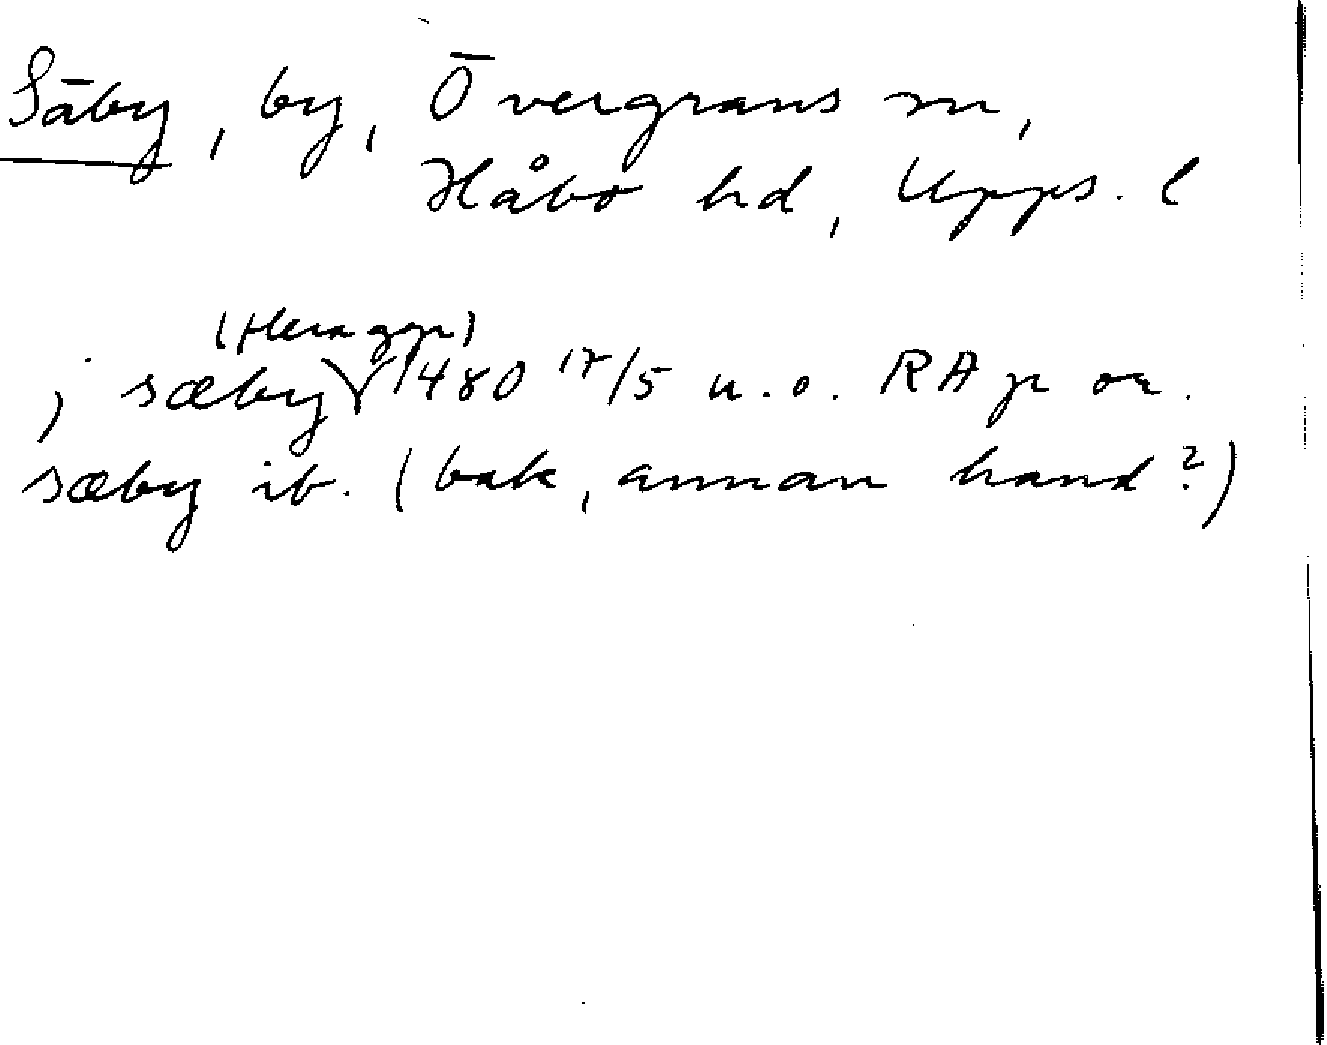 Säby, by, Övergrans sn,
Håbo hd, Upps. l
(flera ggr)
j sæby 1480 17/5 u.o. RAp or.
sæby ib. (bak, annan hand?)